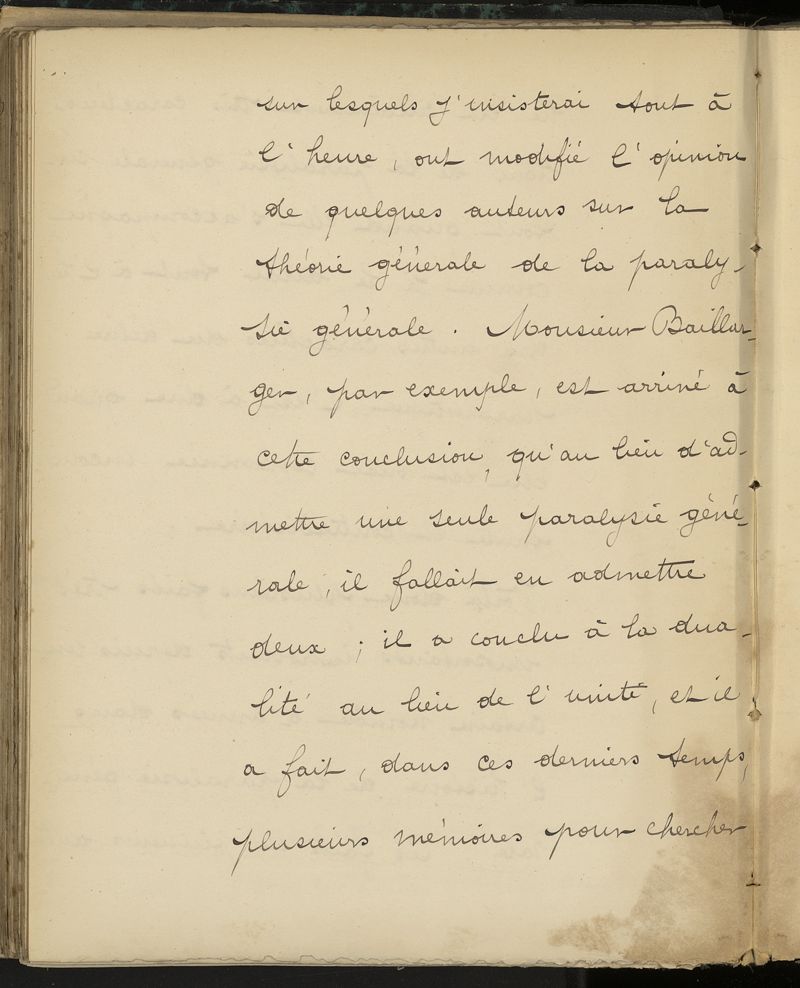 sur lesquels j'insisterai tout à
l'heure, ont modifié l'opinion
de quelques auteurs sur la
théorie générale de la paraly-
sie générale. Monsieur Baillar-
ger, par exemple, est arrivé à
cette conclusion, qu'au lieu d'ad-
mettre une seule paralysie géné-
rale, il fallait en admettre
deux ; il a conclu à la dua-
lité au lieu de l'unité, et il
a fait, dans ces derniers temps,
plusieurs mémoires pour chercher